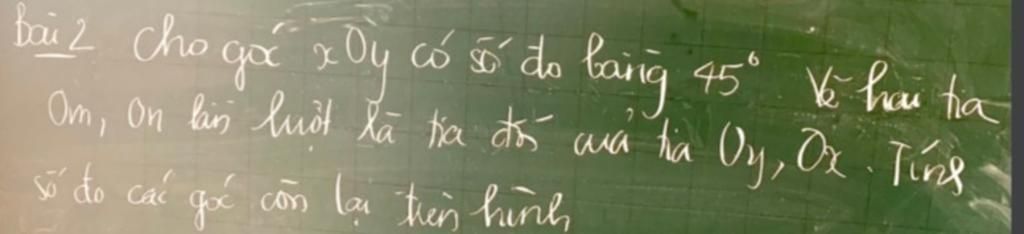 Bài 2 Cho góc xOy có số đo bằng 45° Vẽ hai tia
Om, On lần lượt là tia đối của tia Oy, Ox. Tính
số đo các góc còn lại trên hình